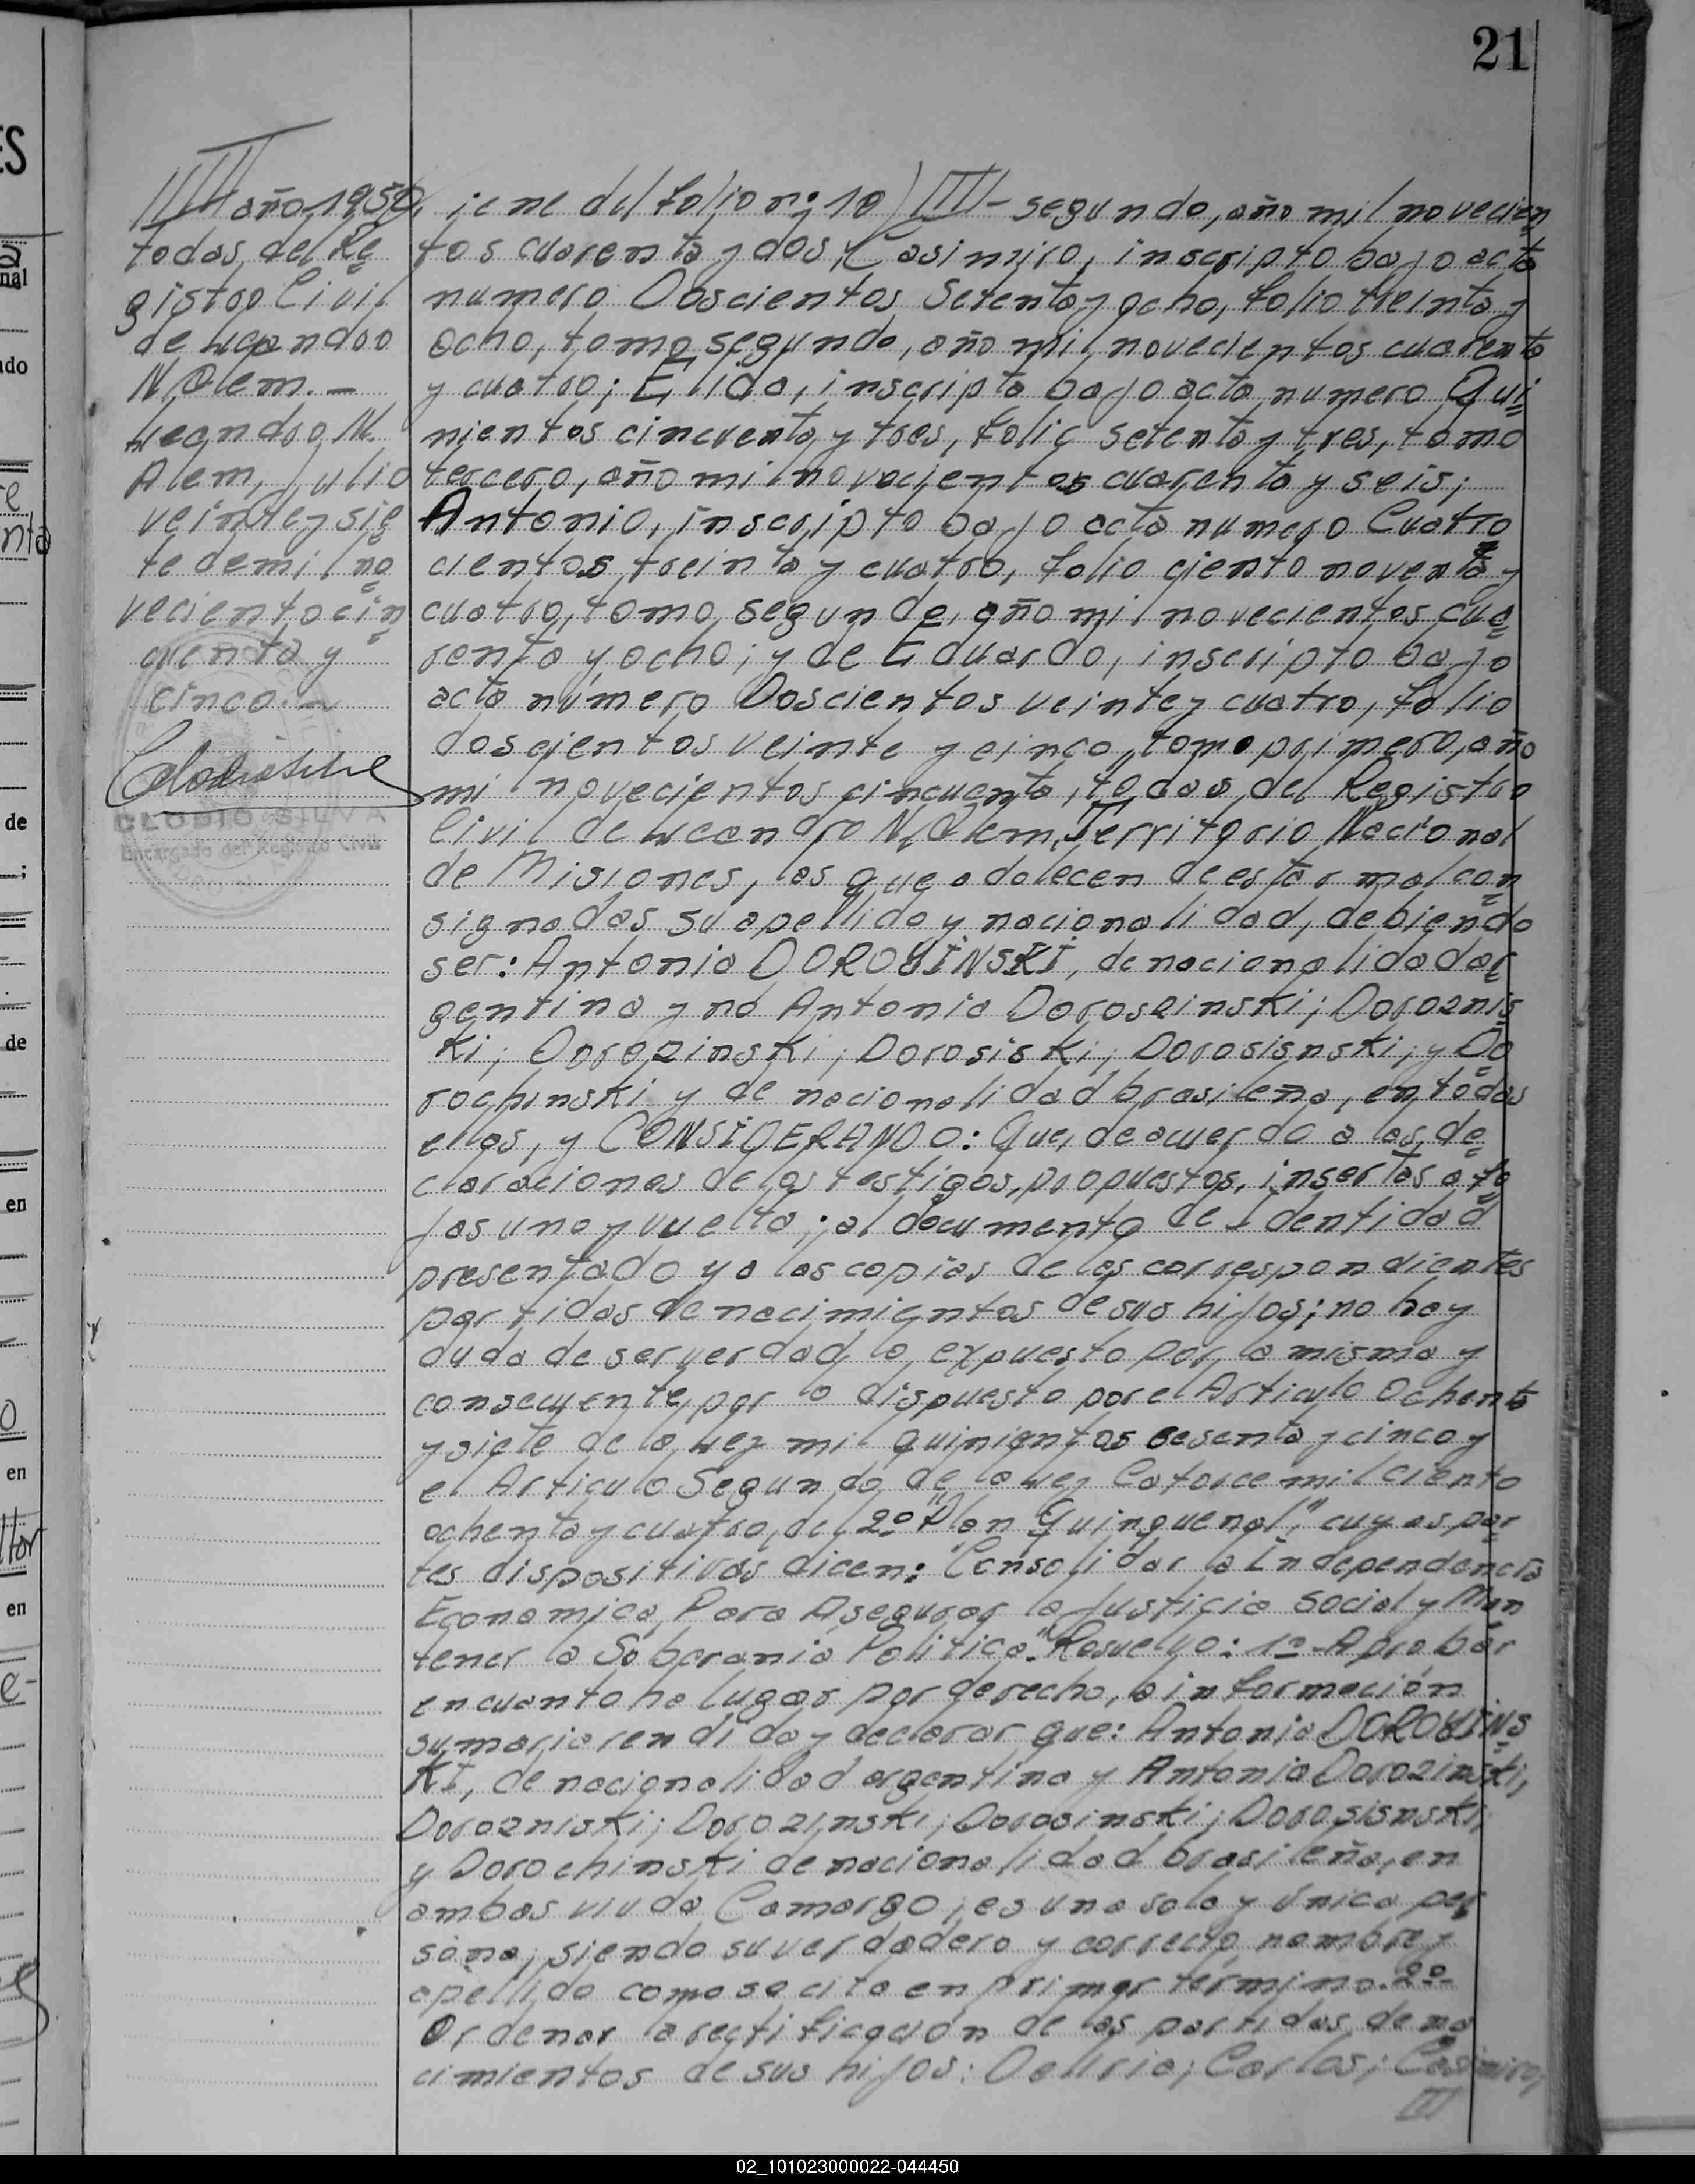 21
//// año 1950,
todas del Re
gistro Civil
de Leandro
N Alem. -
Leandro N.
Alem, Julio
veinte y sie
te de mil no
veciento cin
cuenta y
cinco. -
CLODIO SILVA
Encargado del Registro Civil
iene del folio n: 10) //// - segundo, año mil novecien
tos cuarenta y dos; Casimiro, inscripto bajo acta
numero Doscientos Setenta y ocho, folio treinta y
ocho, tomo segundo, año mil novecientos cuarenta
y cuatro; Elida, inscripta bajo acta numero Qui
nientos cincuenta y tres, folio setenta y tres, tomo
tercero, año mil novecientos cuarenta y seis;
Antonio, inscripto bajo acta numero Cuatro
cientos treinta y cuatro, folio ciento noventa y
cuatro, tomo segundo, año mil novecientos cua
renta y ocho; y de Eduardo, inscripto bajo
acta número Doscientos veinte y cuatro, folio
doscientos veinte y cinco, tomo primero, año
mil novecientos cincuenta, todas del Registro
Civil de Leandro N. Alem, Territorio Nacional
de Misiones, las que adolecen de estar mal con
signadas su apellido y nacionalidad, debiendo
ser: Antonia DOROUINSKI, de nacionalidad ar
gentina y no Antonia Doroszinski; Doroznis
ki; Dorozinski; Dorosiski; Dorosisnski; y Do
rochinski y de nacionalidad brasileña, en todas
ellas, y CONSIDERANDO: Que, de acuerdo a las de
claraciones de los testigos, propuestos, insertas a fo
jas uno y vuelta; al documento de Identidad
presentado y a las copias de las correspondientes
partidas de nacimientos de sus hijos; no hay
duda de ser verdad lo expuesto por la misma y
consecuente, por lo dispuesto por el Articulo Ochenta
y siete de la Ley mil quinientos sesenta y cinco y
el Articulo Segundo de la Ley Catorce mil ciento
ochenta y cuatro, del 2º "Plan Quinquenal", cuyas par
tes dispositivas dicen: "Consolidar la Independencia
Economica, Para Asegurar la Justicia Social y Man
tener la Soberania Politica". Resuelvo: 1º - Aprobar
en cuanto ha lugar por derecho, la información
sumaria rendida y declarar que: Antonia DOROUINS
KI, de nacionalidad argentina y Antonia Dorozinski,
Dorozniski; Dorozinski; Dorosinski; Dorosisnski,
y Dorochinski de nacionalidad brasileña, en
ambas viuda Camargo, es una sola y única per
sona, siendo su verdadero y correcto nombre y
apellido como se cita en primer término. 2º
Ordenar la rectificación de las partidas de na
cimientos de sus hijos: Deliria; Carlos; Casimiro,
////
02_101023000022-044450